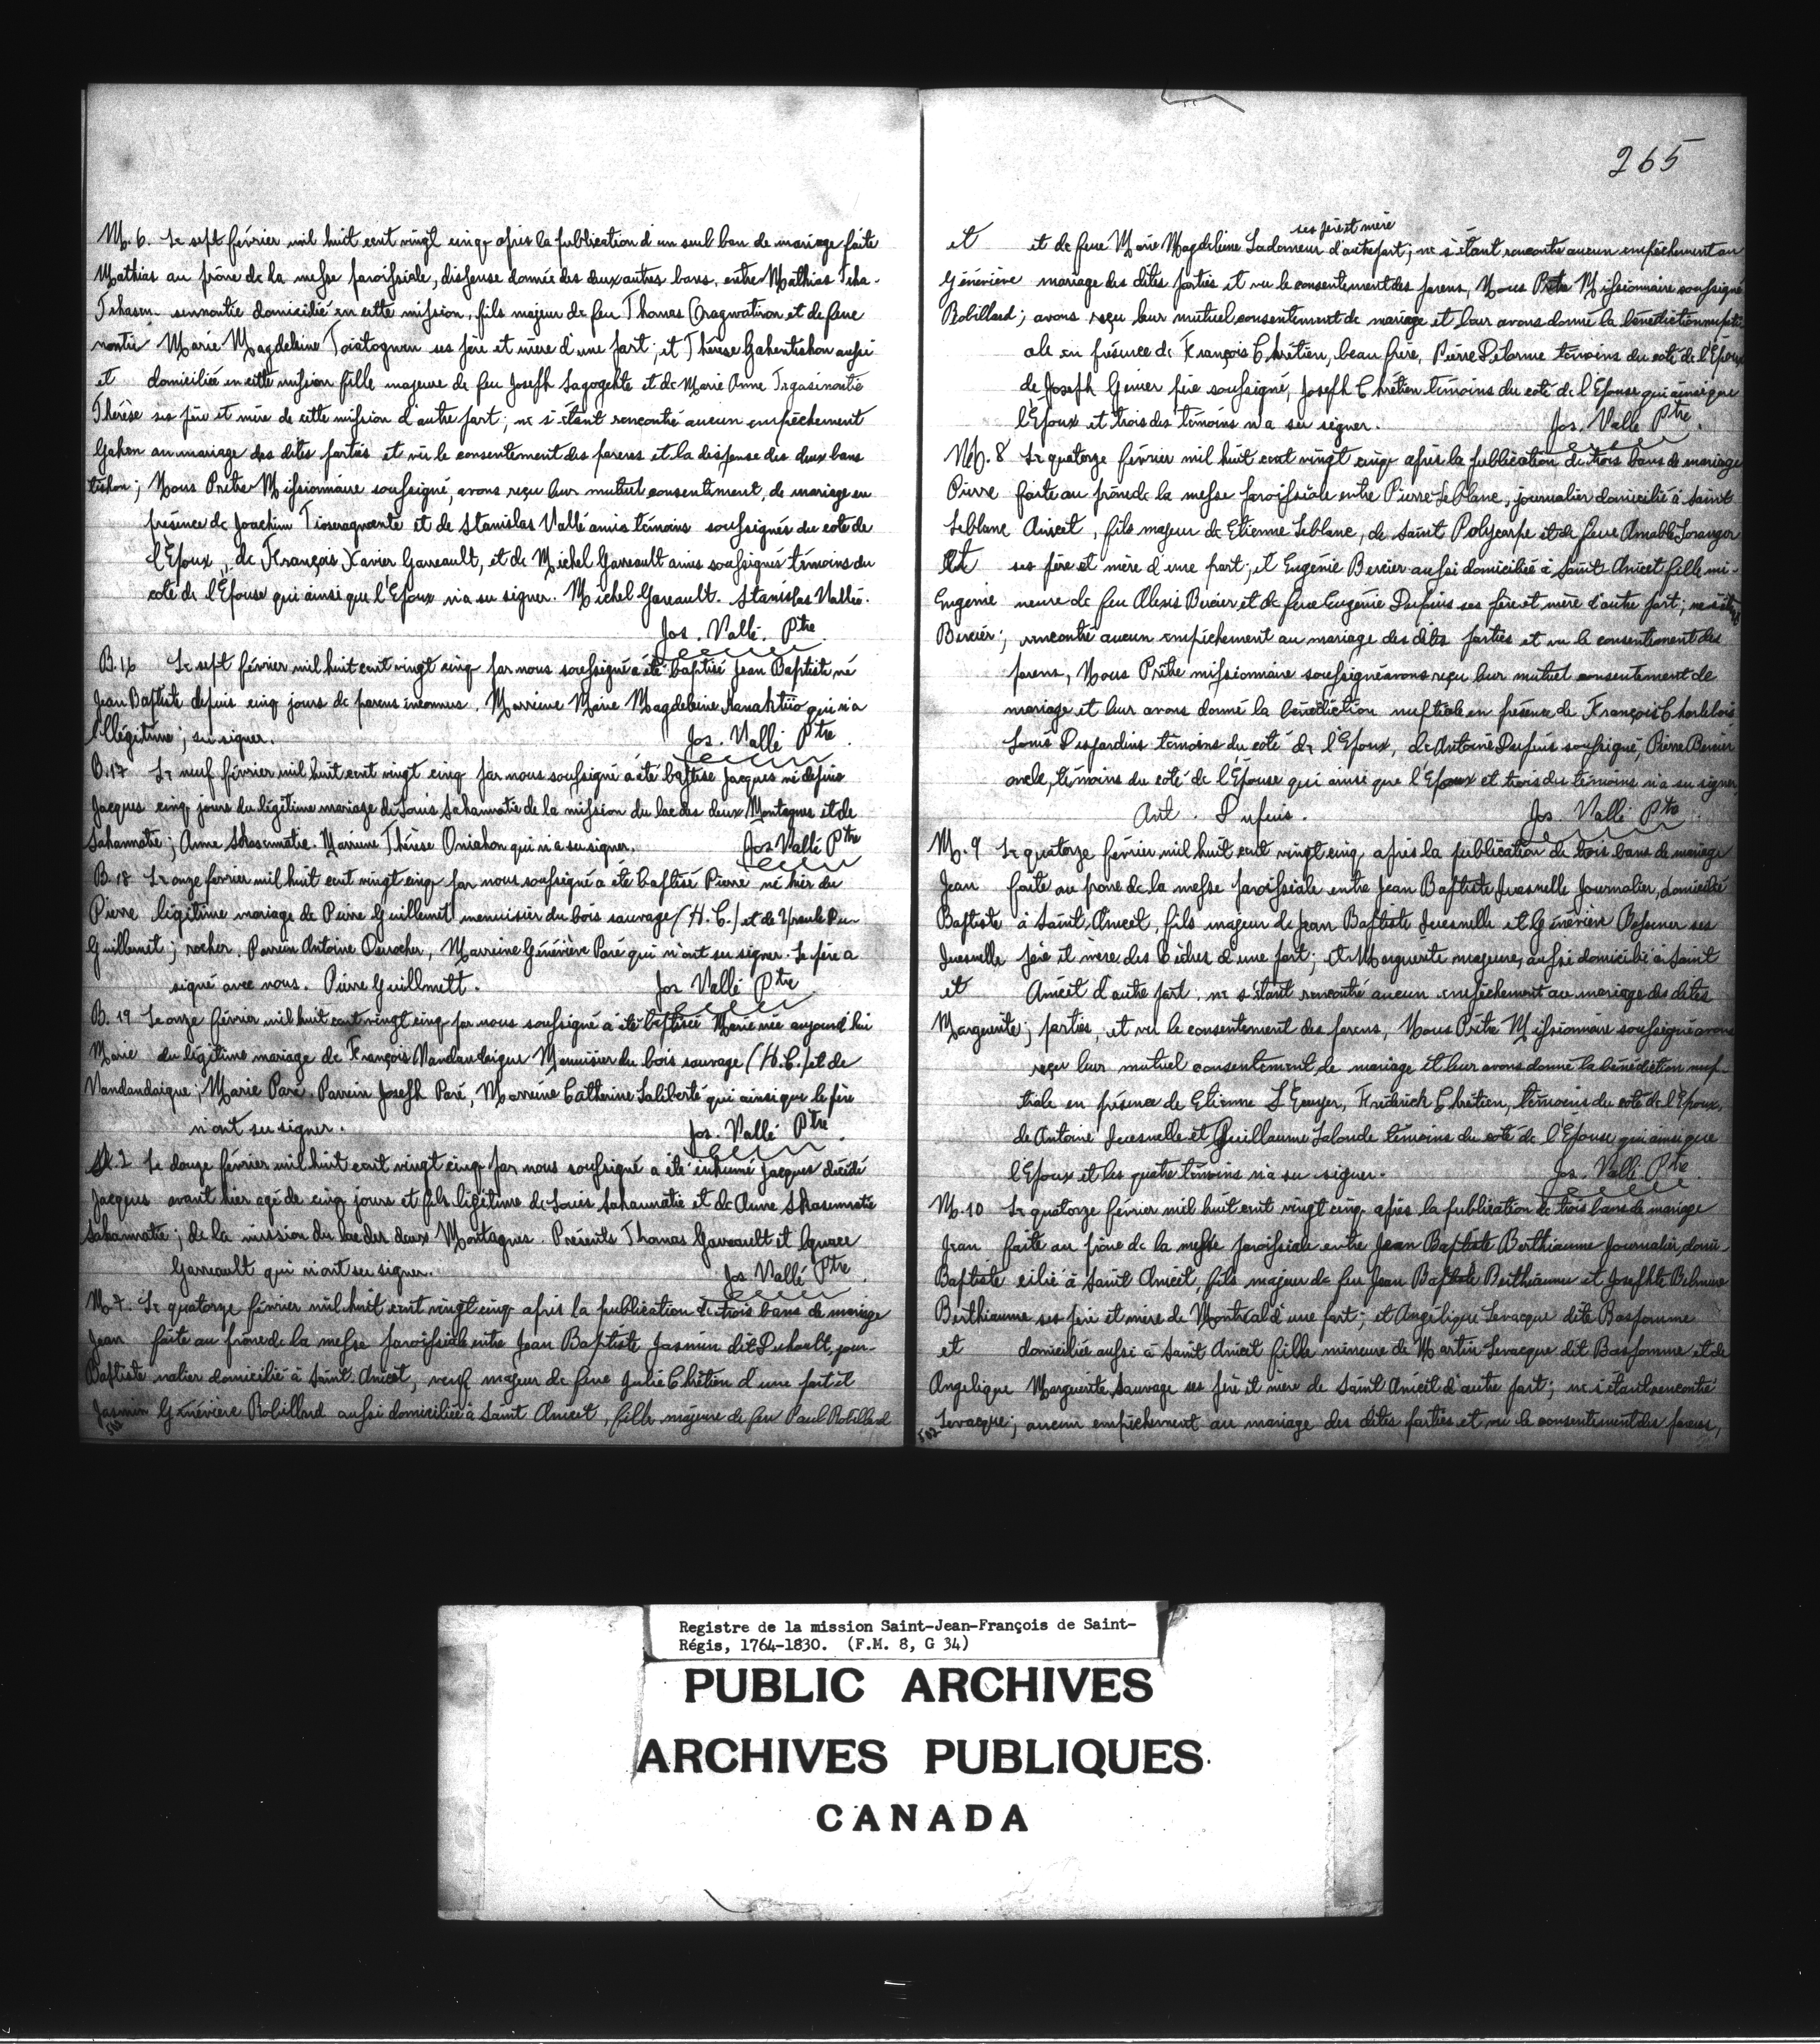 M. 6. Le sept février mil huit cent vingt cinq après la publication d'un seul ban de mariage faite
Mathias au prône de la messe paroissiale, dispense donnée des deux autres bans, entre Mathias Teha-
sennontie domicilié en cette mission, fils majeur de feu Thomas et de feue
nontie Marie Magdeleine ses père et mère d'une part; et Thérèse Gahentishon aussi
et domiciliée en cette mission fille majeure de feu Joseph Sagogehte et de Marie Anne
Thérèse ses père et mère de cette mission d'autre part; ne s'étant rencontré aucun empêchement
Gahen au mariage des dites parties et vû le consentement des parens et la dispense des deux bans
tishon; Nous Prêtre Missionnaire soussigné, avons reçu leur mutuel consentement, de mariage en
présence de Joachim et de Stanislas Vallé amis témoins soussignés du coté de
l'Epoux, de François Xavier Garreault, et de Michel Garreault amis soussignés témoins du
coté de l'Epouse qui ainsi que l'Epoux n'a su signer. Michel Gareault. Stanislas Vallée.
Jos. Vallé. Ptre
B. 16 Le sept février mil huit cent vingt cinq par nous soussigné a été baptisé Jean Baptiste né
Jean Baptiste depuis cinq jours de parens inconnus. Marraine Marie Magdeleine qui n'a
Illégitime; su signer. Jos. Vallé Ptre.
B. 17 Le neuf février mil huit cent vingt cinq par nous soussigné a été baptisé Jacques né depuis
Jacques cinq jours du légitime mariage de Louis Sahannatie de la mission du lac des deux Montagnes et de
Sahannatie; Anne Skasennatie. Marraine Thérèse Oniahon qui n'a su signer. Jos Vallé Ptre
B. 18 Le onze février mil huit cent vingt cinq par nous soussigné a été baptisé Pierre né hier du
Pierre légitime mariage de Pierre Guillemet menuisier du bois sauvage (H. C.) et de Ursule Du-
Guillemet; rocher. Parrein Antoine Durocher, Marraine Généviève Paré qui n'ont su signer. Le père a
signé avec nous. Pierre Guillmett. Jos Vallé Ptre
B. 19 Le onze février mil huit cent vingt cinq par nous soussigné a été baptisée Marie née aujourd'hui
Marie du légitime mariage de François Vandandaigue Menuisier du bois sauvage (H. C.) et de
Vandandaigue; Marie Paré. Parrein Joseph Paré, Marraine Catherine Laliberté qui ainsi que le père
n'ont su signer. Jos. Vallé Ptre.
S. 2 Le douze février mil huit cent vingt cinq par nous soussigné a été inhumé Jacques décédé
Jacques avant hier agé de cinq jours et fils légitime de Louis Sahannatie et de Anne Skasennatie
Sahannatie; de la mission du lac des deux Montagnes. Présents Thomas Garreault et Ignace
Garreault qui n'ont su signer. Jos Vallé Ptre.
M. 7. Le quatorze février mil huit cent vingt cinq après la publication de trois bans de mariage
Jean faite au prône de la messe paroissiale entre Jean Baptiste Jasmin dit Duhault, jour-
Baptiste nalier domicilié à Saint Anicet, veuf majeur de feue Julie Chrétien d'une part et
Jasmin Généviève Robillard aussi domiciliée à Saint Anicet, fille majeure de feu Paul Robillard
265
ses père et mère
et et de feue Marie Magdeleine Ladomeur d'autre part; ne s'étant rencontré aucun empêchement au
Généviève mariage des dites parties et vu le consentement des parens, Nous Prêtre Missionnaire soussigné
Robillard; avons reçu leur mutuel consentement de mariage et leur avons donné la bénédiction nupti
ale en présence de François Chrétien, beau frère, Pierre Delorme témoins du coté de l'Epoux,
de Joseph Genier père soussigné, Joseph Chrétien témoins du coté de l'Epouse qui ainsi que
l'Epoux et trois des témoins n'a su signer. Jos. Vallé Ptre.
M. 8 Le quatorze février mil huit cent vingt cinq après la publication de trois bans de mariage
Pierre faite au prône de la messe paroissiale entre Pierre Leblanc, journalier domicilié à Saint
Leblanc Anicet, fils majeur de Etienne Leblanc, de Saint Polycarpe et de feue Amable Loranger
Et ses père et mère d'une part, et Eugénie Bercier aussi domiciliée à Saint Anicet fille mi-
Eugenie neure de feu Alexis Bercier et de feue Eugénie Dupuis ses père et mère d'autre part; ne s'étant
Bercier; rencontré aucun empêchement au mariage des dites parties et vu le consentement des
parens, Nous Prêtre missionnaire soussigné avons reçu leur mutuel consentement de
mariage et leur avons donné la bénédiction nuptiale en présence de François Charlebois
Louis Desjardins témoins du coté de l'Epoux, de Antoine Dupuis soussigné, Pierre Bercier
oncle, témoins du coté de l'Epouse qui ainsi que l'Epoux et trois des témoins n'a su signer
Ant. Dupuis. Jos. Vallé Ptre.
M. 9 Le quatorze février mil huit cent vingt cinq après la publication de trois bans de mariage
Jean faite au prône de la messe paroissiale entre Jean Baptiste Juesnelle Journalier, domicilié
Baptiste à Saint Anicet, fils majeur de Jean Baptiste Juesnelle et Généviève ses
Juesnelle père et mère des Cèdres d'une part; et Marguerite majeure, aussi domiciliée à Saint
et Anicet d'autre part, ne s'étant rencontré aucun empêchement au mariage des dites
Marguerite; parties, et vu le consentement des parens, Nous Prêtre Missionnaire soussigné avons
reçu leur mutuel consentement de mariage et leur avons donné la bénédiction nup-
tiale en présence de Etienne L'Ecuyer, Frédérick Chrétien, témoins du coté de l'Epoux,
de Antoine Juesnelle et Guillaume Lalonde témoins du coté de l'Epouse qui ainsi que
l'Epoux et les quatre témoins n'a su signer. Jos. Vallé Ptre.
M. 10 Le quatorze février mil huit cent vingt cinq après la publication de trois bans de mariage
Jean faite au prône de la messe paroissiale entre Jean Baptiste Berthiaume Journalier, domi-
Baptiste cilié à Saint Anicet, fils majeur de feu Jean Baptiste Berthiaume et Josephte
Berthiaume ses père et mère de Montréal d'une part; et Angélique Levacque dite Basjomme
et domiciliée aussi à Saint Anicet fille mineure de Martin Levacque dit Basjomme et de
Angelique Marguerite Sauvage ses père et mère de Saint Anicet d'autre part; ne s'étant rencontré
Levacque; aucun empêchement au mariage des dites parties et vu le consentement des parens,
Registre de la mission Saint-Jean-François de Saint-
Régis, 1764-1830. (F.M. 8, G 34)
PUBLIC ARCHIVES
ARCHIVES PUBLIQUES
CANADA